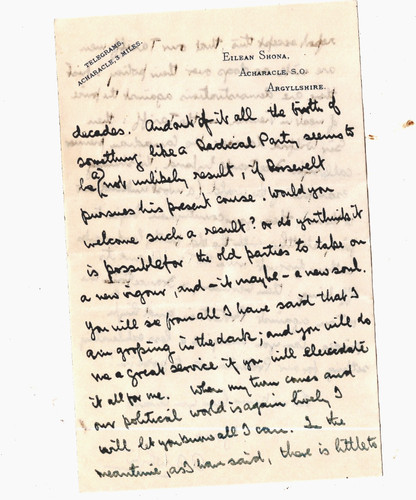 TELEGRAMS,
ACHARACLE, 3 MILES.
EILEAN SHONA,
ACHARACLE, S.O.
ARGYLLSHIRE.
decades. And out of it all the birth of
something like a Radical Party seems to
be a not unlikely result, if Roosevelt
pursues his present course. Would you
welcome such a result? or do you think it
is possible for the old parties to take on
a new vigour, and – it may be – a new soul.
You will see from all I have said that I
am groping in the dark; and you will do
me a great service if you will elucidate
it all for me. When my turn comes and
our political world is again lively I
will let you know all I can. In the
meantime, as I have said, there is little to